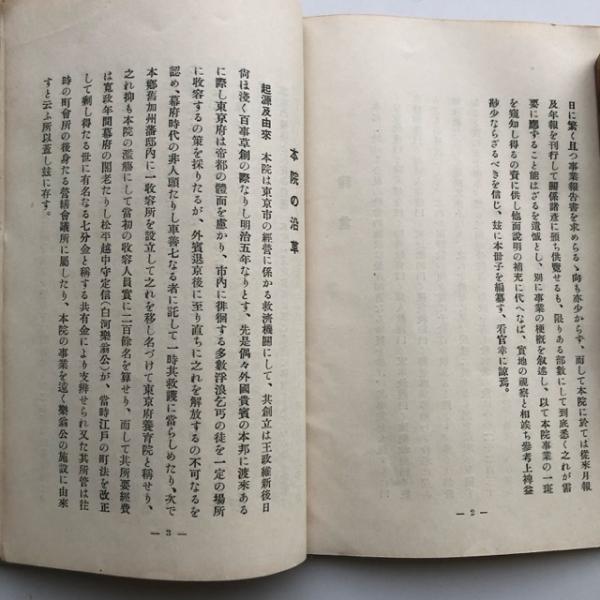 日に繁く且つ事業報告書を求めらるゝ向も亦少からず、而して本院に於ては從來月報
及年報を刊行して關係諸彦に頒ち供覽せるも、限りある部數にして到底悉く之れが需
要に應ずること能はざるを遺憾とし、別に事業の梗概を叙述し、以て本院事業の一斑
を窺知し得るの資に供し他面說明の補充に代へなば、實地の視察と相竢ち參考上裨益
尠少ならざるべきを信じ、玆に本冊子を編纂す、看官幸に諒焉。
— 2 —
本院の沿革
起源及由來 本院は東京市の經營に係かる救濟機關にして、其創立は王政維新後日
尙ほ淺く百事草創の際なりし明治五年なりとす、先是偶々外國貴賓の本邦に渡來ある
に際し東京府は帝都の體面を慮かり、市內に徘徊する多數浮浪乞丐の徒を一定の場所
に收容するの策を採りたるが、外賓退京後に至り直ちに之れを解放するの不可なるを
認め、幕府時代の非人頭たりし車善七なる者に託して一時其救護に當らしめたり、次で
本鄕舊加州藩邸內に一收容所を設立して之れを移し名づけて東京府養育院と稱せり、
之れ抑も本院の濫觴にして當初の收容人員實に二百餘名を算せり、而して其所要經費
は寬政年間幕府の閣老たりし松平越中守定信(白河樂翁公)が、當時江戶の町法を改正
して剩し得たる世に有名なる七分金と稱する共有金により支辨せられ又た其所管は往
時の町會所の後身たる營繕會議所に屬したり、本院の事業を遠く樂翁公の施設に由來
すと云ふ所以蓋し玆に存す。
— 3 —